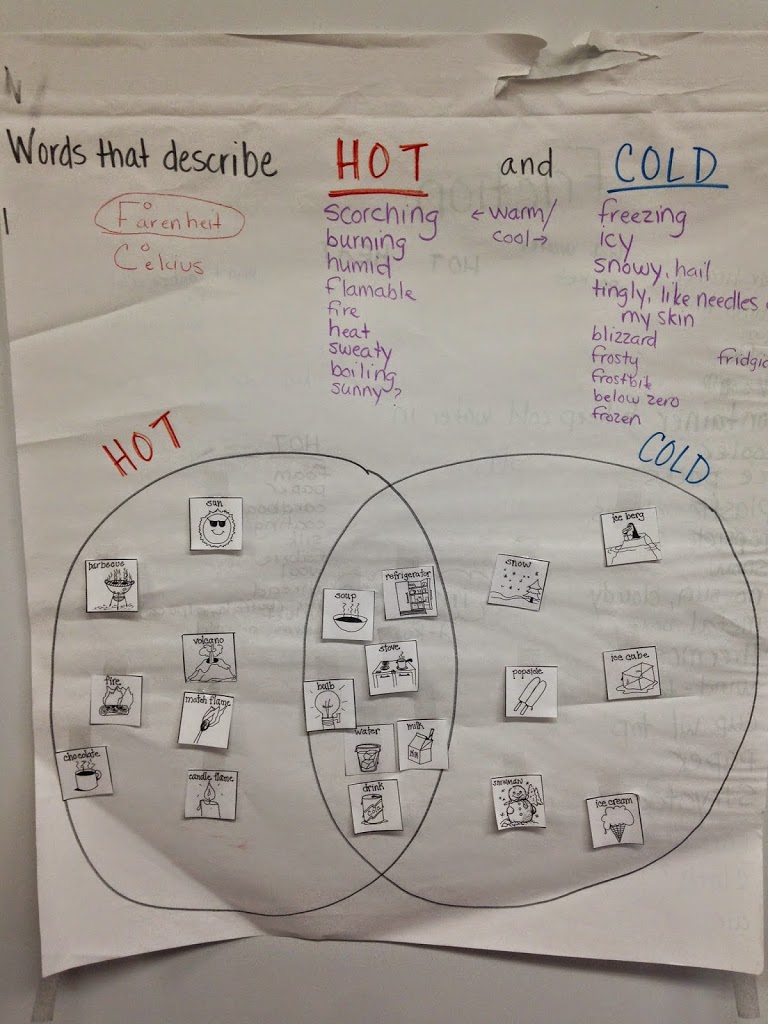 Words that describe HOT and COLD
Farenheit
Celcius
scorching
burning
humid
flamable
fire
heat
sweaty
boiling
sunny?
←warm/
cool→
freezing
icy
snowy, hail
tingly, like needles
my skin
blizzard
frosty
frostbit
below zero
frozen
HOT
COLD
sun
barbecue
volcano
fire
match flame
chocolate
candle flame
soup
refrigerator
stove
bulb
water
milk
drink
ice berg
snow
popsicle
ice cube
snowman
ice cream